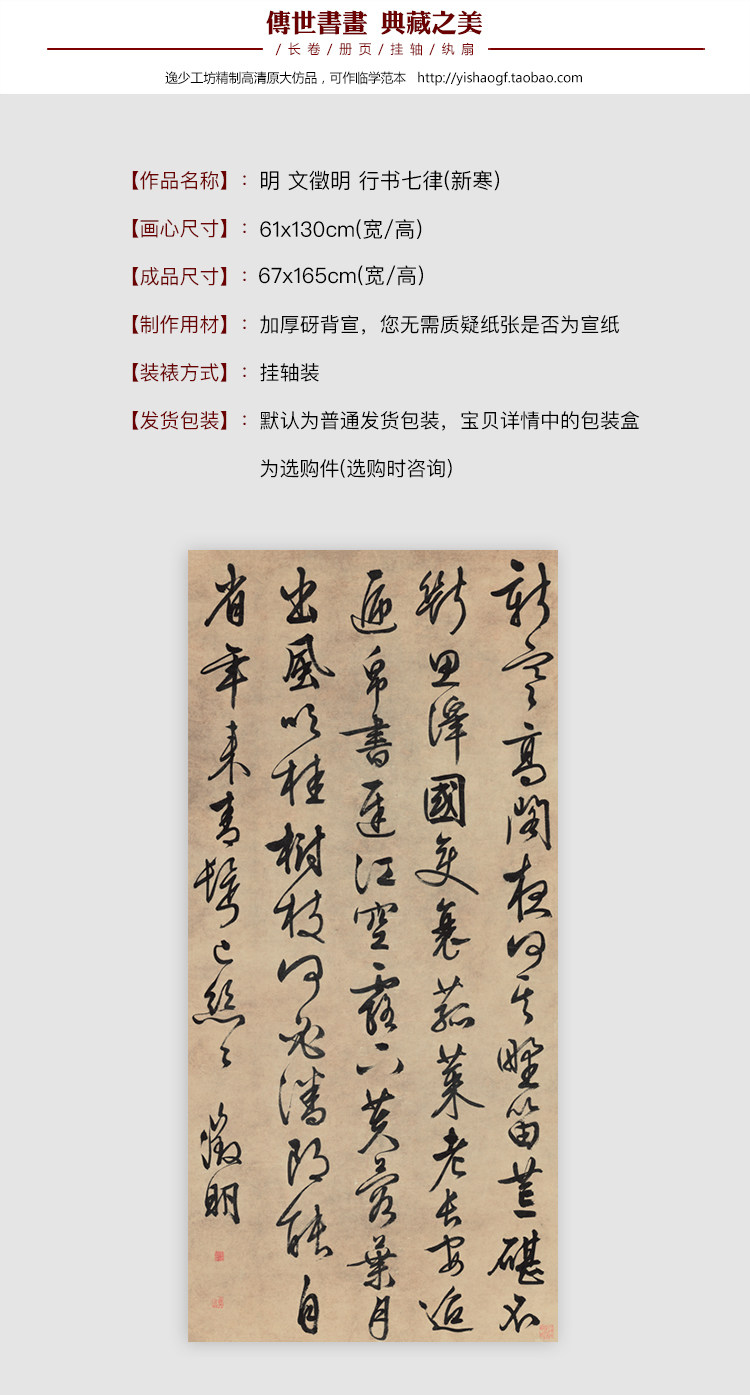 傳世書畫 典藏之美
/长卷/册页/挂轴/纨扇
逸少工坊精制高清原大仿品，可作临学范本 http://yishaogf.taobao.com
【作品名称】：明 文徵明 行书七律(新寒)
【画心尺寸】：61x130cm(宽/高)
【成品尺寸】：67x165cm(宽/高)
【制作用材】：加厚砑背宣，您无需质疑纸张是否为宣纸
【装裱方式】：挂轴装
【发货包装】：默认为普通发货包装，宝贝详情中的包装盒
为选购件(选购时咨询)
新寒高閣夜何其野笛荒碪不
斷思澤國變衰菰菜老長安迢
遞帛書遲江空露下芙蓉葉月
出風吹桂樹枝何必潘郎能自
省年來青鬢已絲〻 徵明